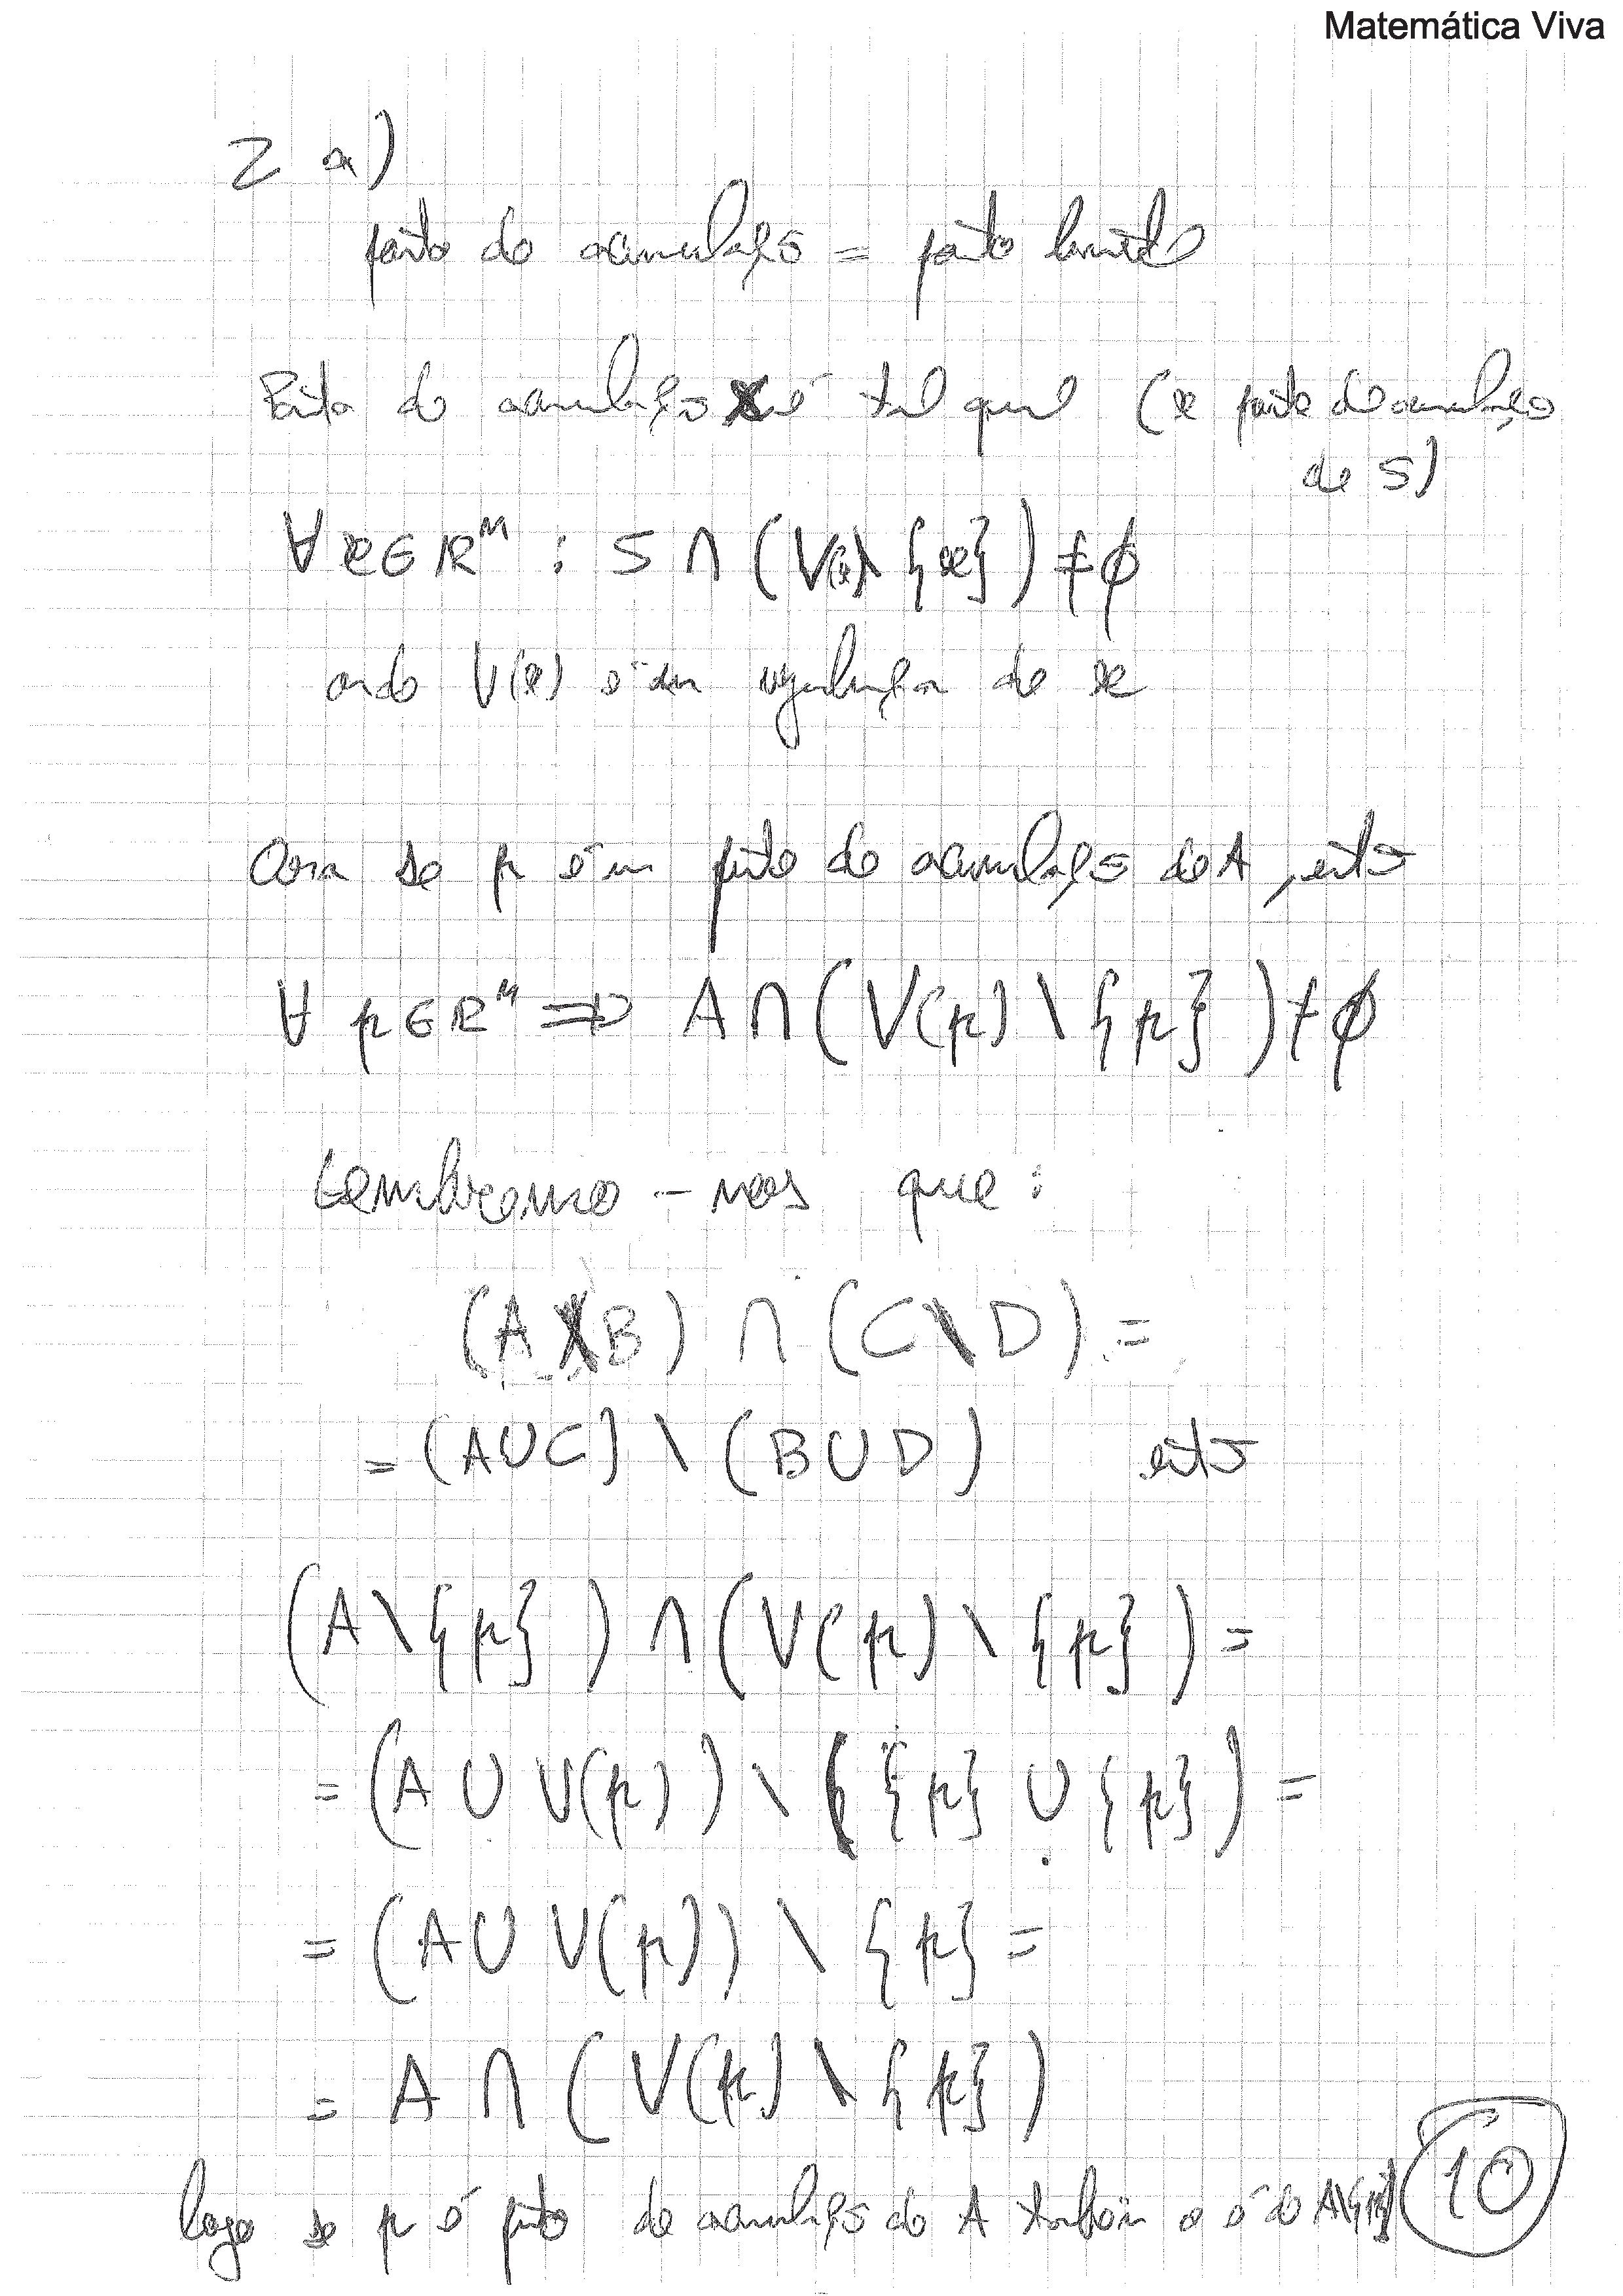 Matemática Viva
2 a)
ponto de acumulação = ponto limite
Ponto de acumulação é tal que (x ponto de acumulação
de S)
∀x∈ℝⁿ : S ∩ (V(x)\{x}) ≠ ∅
onde V(x) é uma vizinhança de x
Ora se p é um ponto de acumulação de A, então
∀ p∈ℝⁿ ⇒ A∩(V(p)\{p}) ≠ ∅
Lembremo-nos que:
(A\B) ∩ (C\D) =
= (A∪C) \ (B∪D) então
(A\{p}) ∩ (V(p) \ {p}) =
= (A ∪ V(p)) \ ({p} ∪ {p}) =
= (A∪V(p)) \ {p} =
= A ∩ (V(p) \ {p})
logo se p é ponto de acumulação de A também o é de A\{p}
10